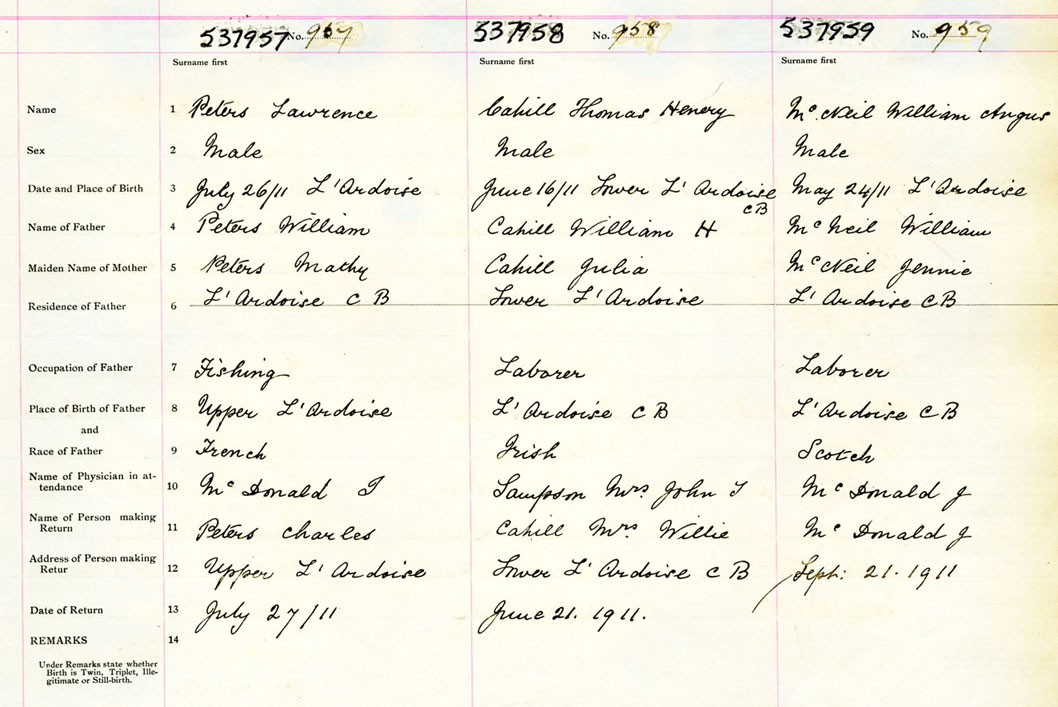 537957 No. 957 537958 No. 958 537959 No. 959
Surname first Surname first Surname first
Name 1 Peters Lawrence Cahill Thomas Henery Mc. Neil William Angus
Sex 2 Male Male Male
Date and Place of Birth 3 July 26/11 L'Ardoise June 16/11 Lower L'Ardoise May 24/11 L'Ardoise
CB
Name of Father 4 Peters William Cahill William H Mc Neil William
Maiden Name of Mother 5 Peters Mathy Cahill Julia Mc Neil Jennie
Residence of Father 6 L'Ardoise C B Lower L'Ardoise L'Ardoise C B
Occupation of Father 7 Fishing Laborer Laborer
Place of Birth of Father 8 Upper L'Ardoise L'Ardoise C B L'Ardoise C B
and
Race of Father 9 French Irish Scotch
Name of Physician in at-
tendance 10 Mc Donald Sampson Mrs John Mc Donald J
Name of Person making
Return 11 Peters Charles Cahill Mrs. Willie Mc Donald J
Address of Person making
Retur 12 Upper L'Ardoise Lower L'Ardoise C B Sept: 21. 1911
Date of Return 13 July 27/11 June 21. 1911.
REMARKS 14
Under Remarks state whether
Birth is Twin, Triplet, Ille-
gitimate or Still-birth.